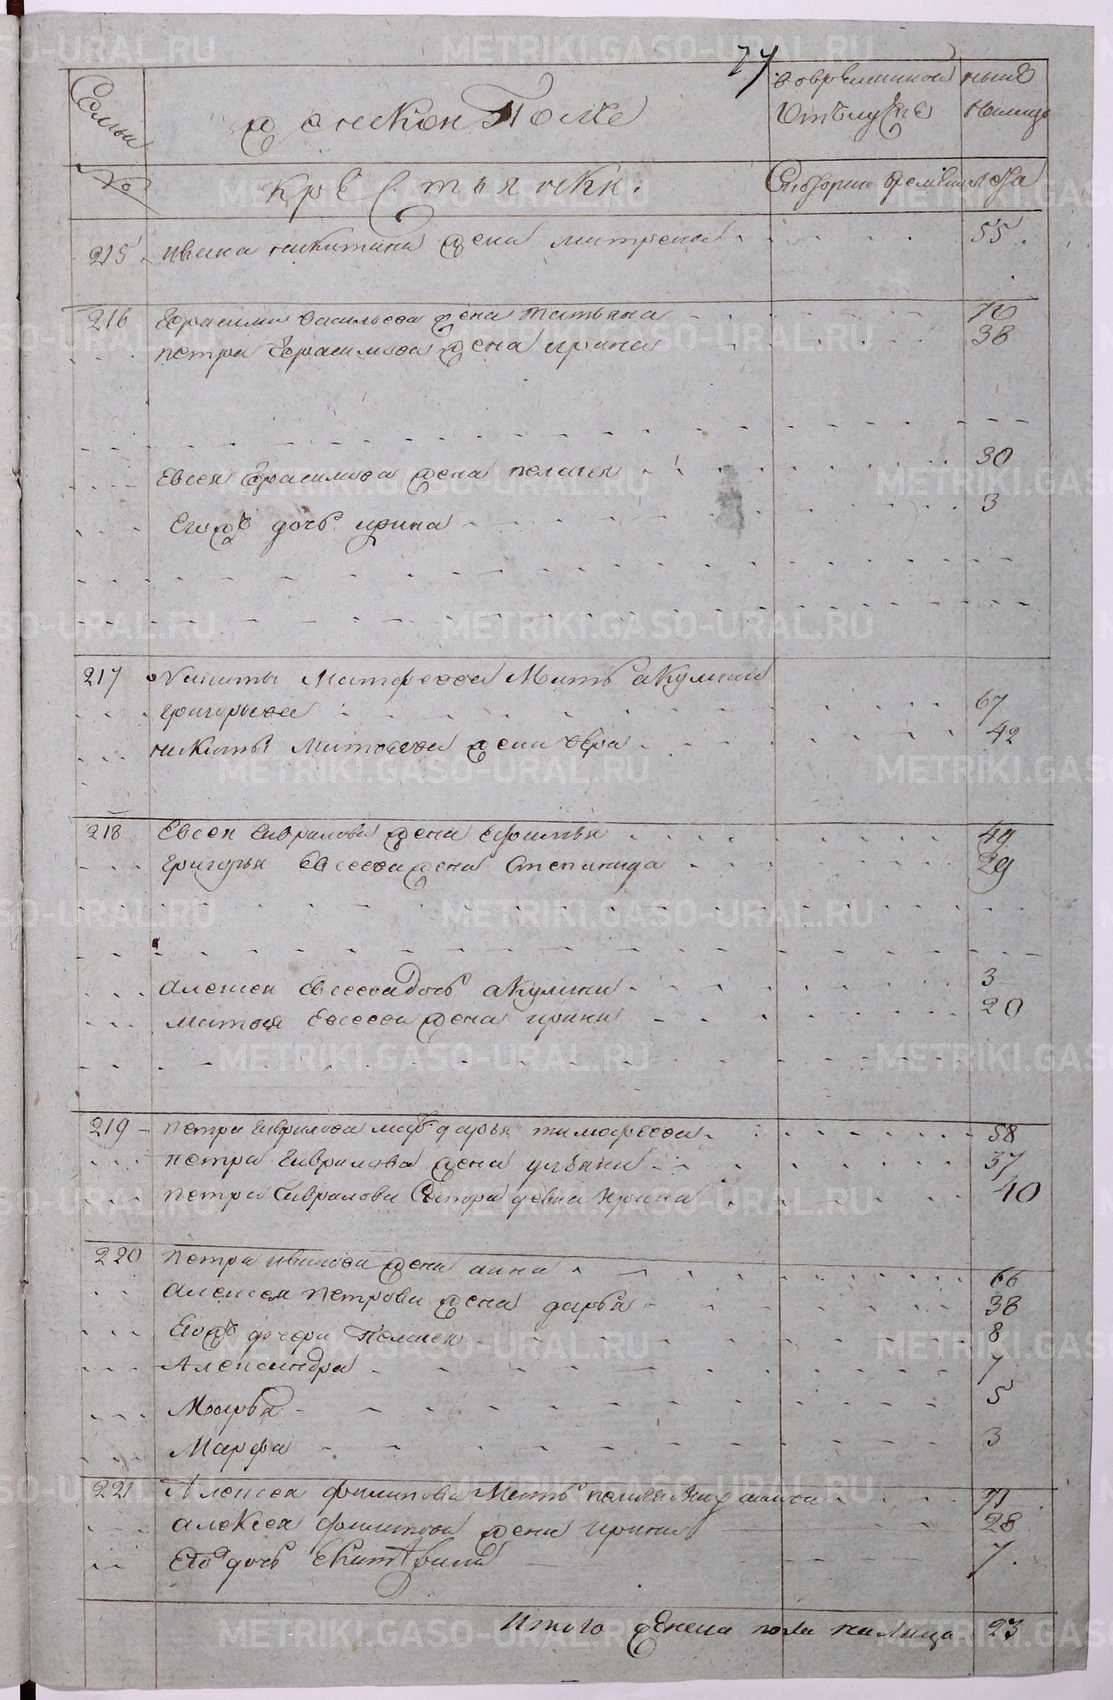 77
Семьи
№
Женскои Полъ
Крестьянки.
Во временной
Отлучке
Ныне
На лицо
С котораго времени
Лета
215 Ивана Никитина жена Матрена 55
216 Герасима Васильева жена Татьяна 70
Петра Герасимова жена Ирина 38
Евсея Герасимова жена Пелагея 30
Его ж дочь Ирина 3
217 Никиты Матфеева Мать Акулина
Григорьева 67
Никиты Матвеева жена 42
218 Евсея Гаврилова жена Ефимья 49
Григорья Евсеева жена Степанида 29
Алексея Евсеева дочь Акулина 3
Матвея Евсеева жена Ирина 20
219 Петра Гаврилова мать Дарья Тимофеева 58
Петра Гаврилова жена Ульяна 37
Петра Гаврилова Сестра девка Ирина 40
220 Петра Иванова жена Анна 66
Алексея Петрова жена Дарья 38
Его ж дочери Пелагея 8
Александра 7
Марья 5
Марфа 3
221 Алексея Филипова Мать Пелагея 71
Алексея Филипова жена Ирина 28
Его дочь Екатерина 7
Итого Женска пола на Лицо 23
METRIKI.GASO-URAL.RU